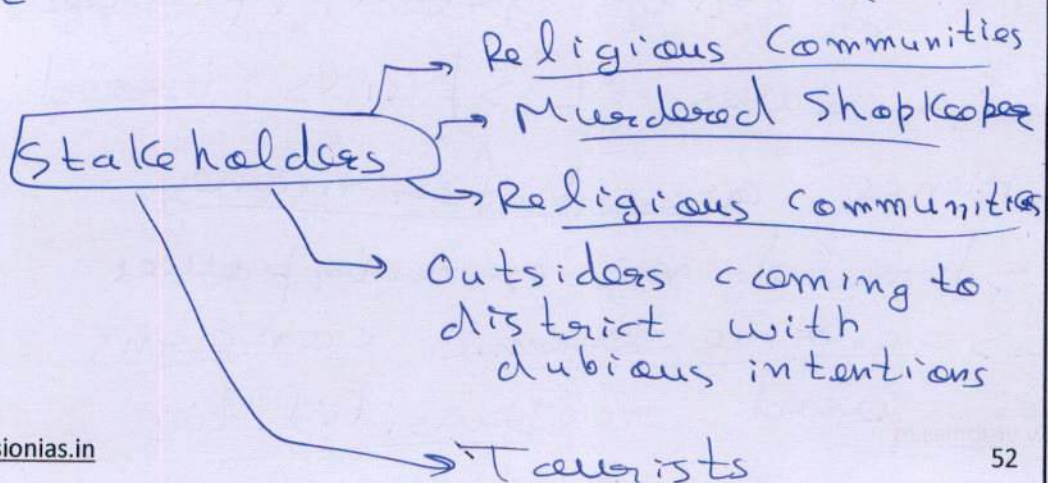 Religious Communities
Murdered Shopkeeper
Stakeholders
Religious Communities
Outsiders coming to
district with
dubious intentions
Tourists
sionias.in
52